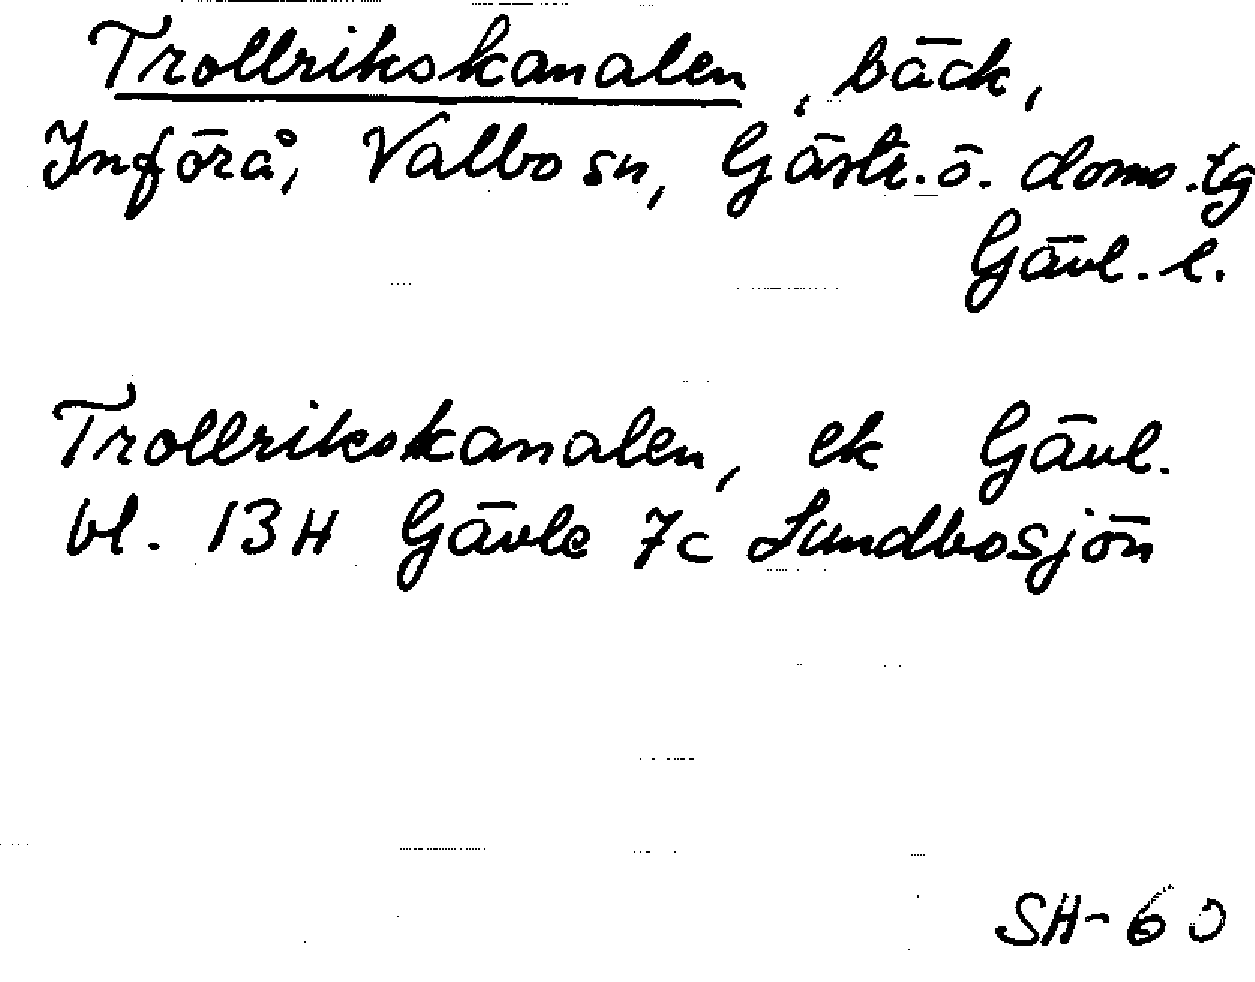 Trollrikskanalen, bäck,
Införå, Valbo sn, Gästr. ö. doms.tg
Gävl. l.
Trollrikskanalen, ek Gävl.
bl. 13H Gävle 7c Lundbosjön
SH-60